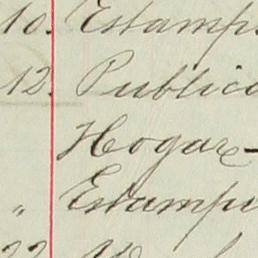 10. Estamp
12. Publica
Hogar-
„ Estampi
22